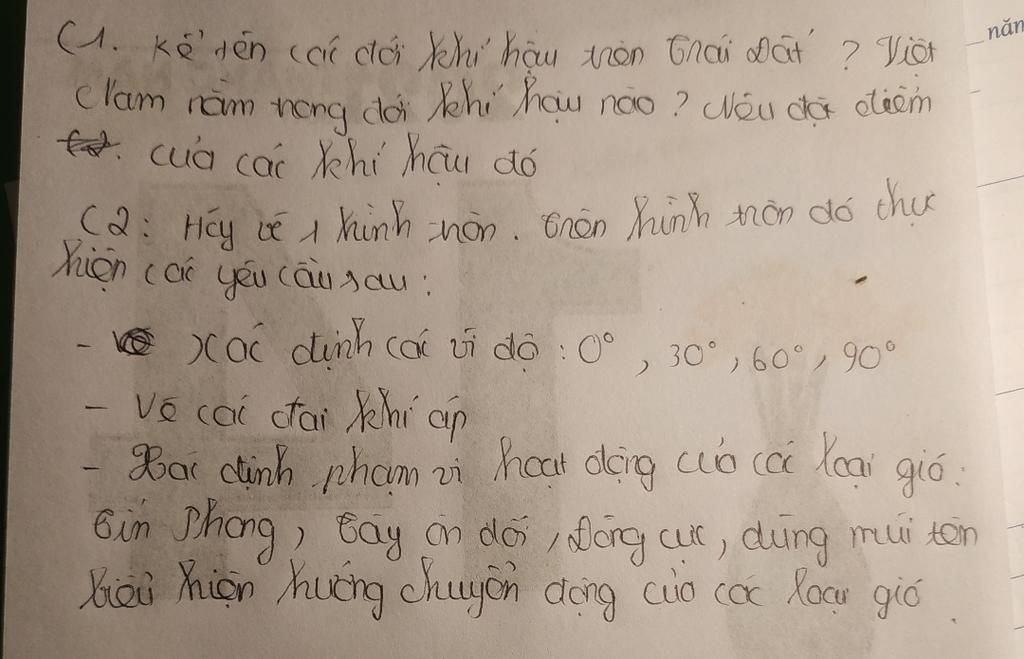 C1. Kể tên các đới khí hậu trên Trái Đất ? Việt
Nam nằm trong đới khí hậu nào ? Nêu đặc điểm
của các khí hậu đó
C2 : Hãy vẽ 1 hình tròn. Trên hình tròn đó thực
hiện các yêu cầu sau :
- Xác định các vĩ độ : 0° , 30° , 60° , 90°
- Vẽ các đai khí áp
- Xác định phạm vi hoạt động của các loại gió :
Tín Phong, Tây ôn đới, Đông cực, dùng mũi tên
biểu hiện hướng chuyển động của các loại gió .
năm